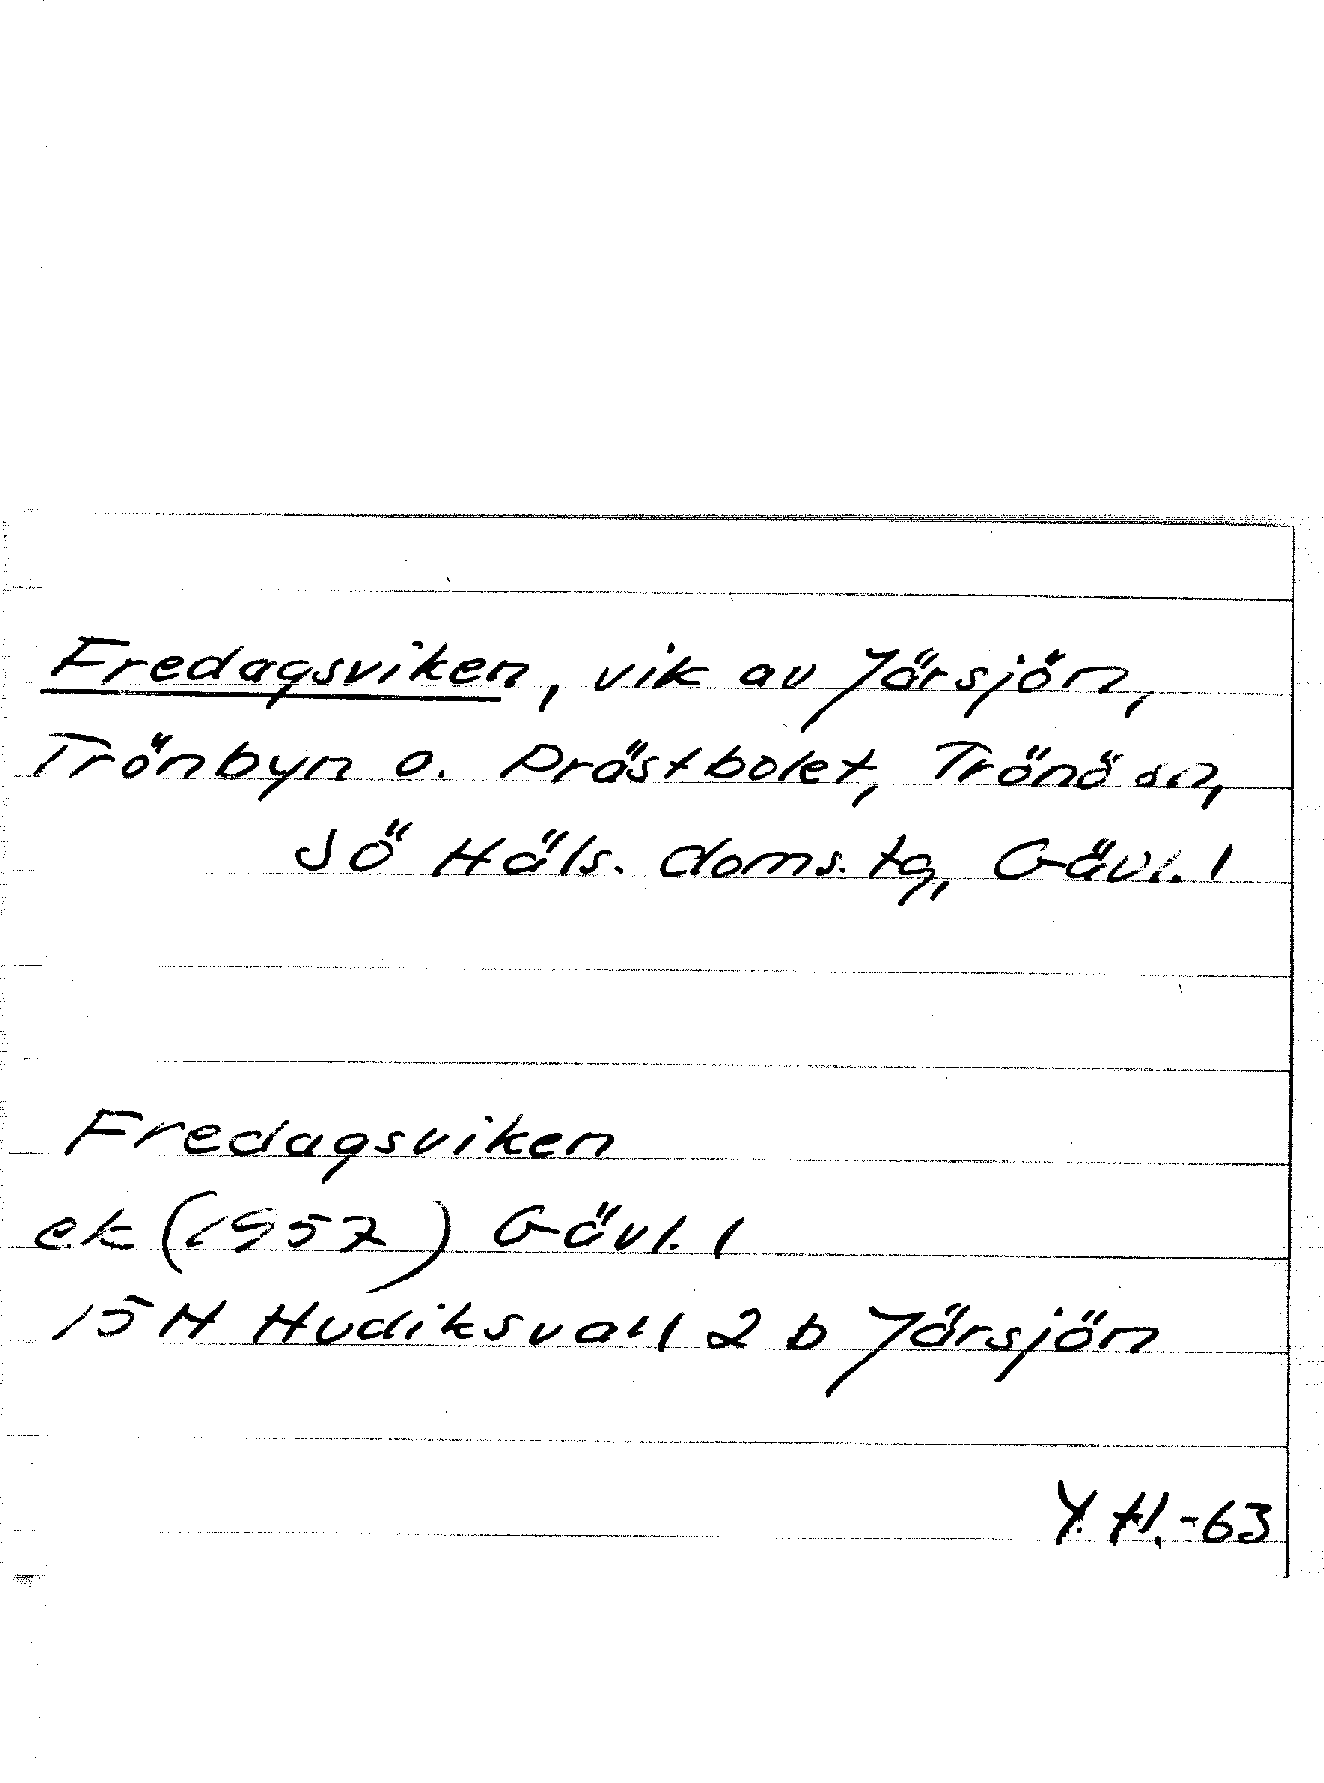 Fredagsviken, vik av Järsjön,
Trönbyn o. Prästbolet, Trönö sn,
SÖ Häls. doms.tg, Gävl. l
Fredagsviken
ek (1957) Gävl. l
15 H Hudiksvall 2 b Järsjön
Y. H. -63